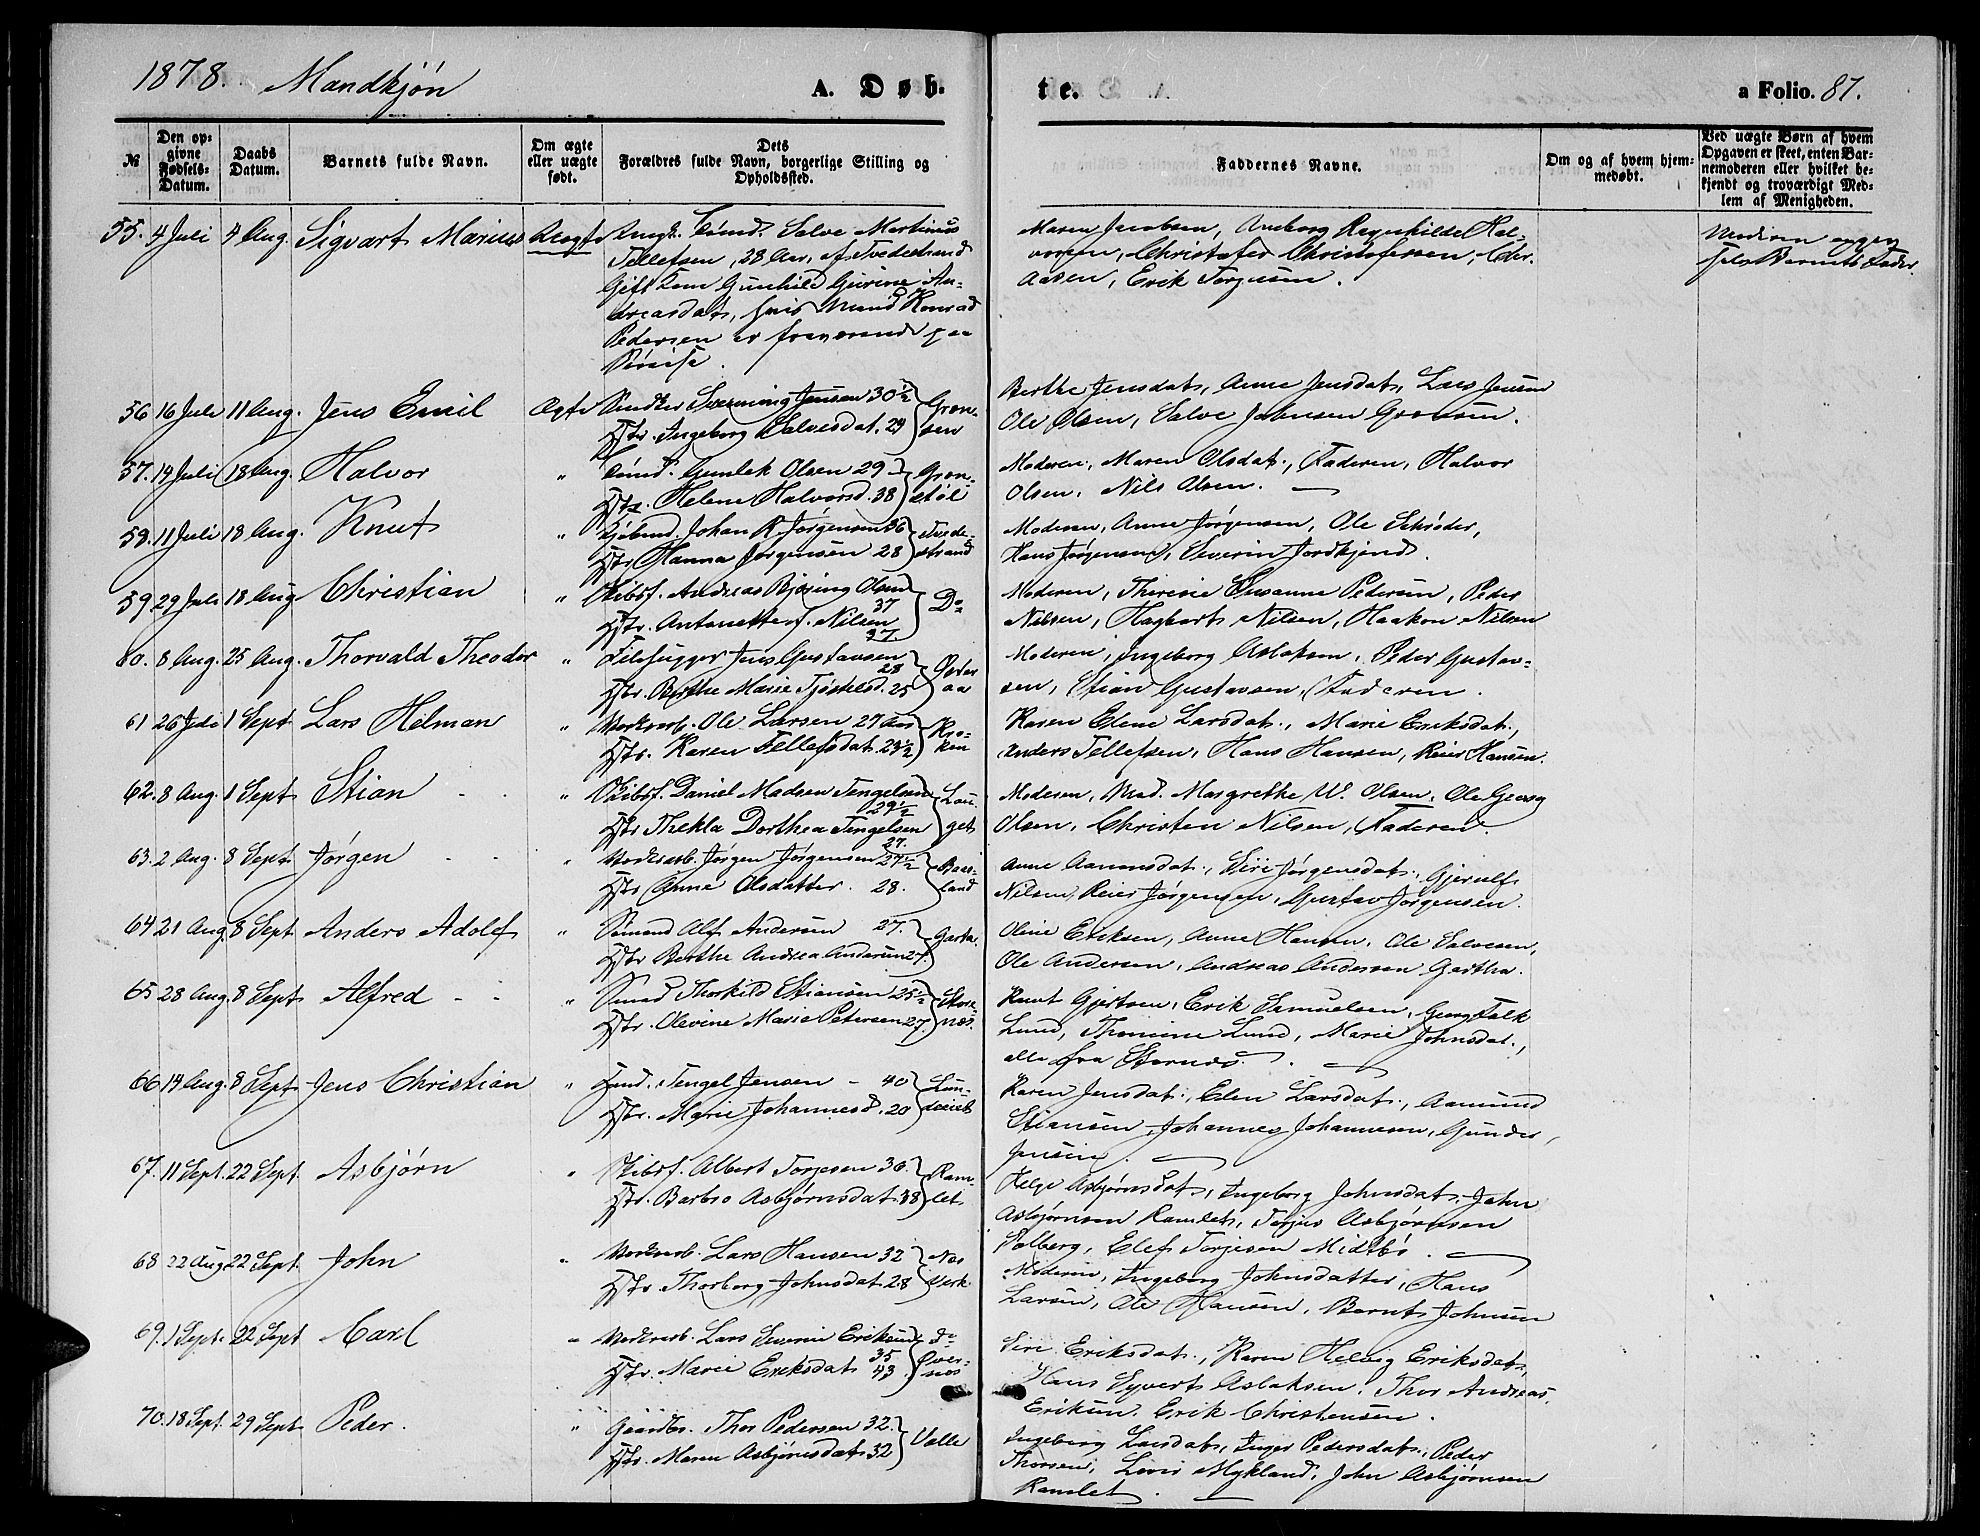 1878. Mandkjøn A. Døb- te. a Folio. 87.
№
Den op-
givne
Fødsels-
Datum.
Daabs
Datum.
Barnets fulde Navn.
Om ægte
eller uægte
født.
Dets
Forældres fulde Navn, borgerlige Stilling og
Opholdssted.
Faddernes Navne.
Om og af hvem hjem-
medøbt.
Ved uægte Børn af hvem
Opgaven er skeet, enten Bar-
nemoderen eller hvilket be-
kjendt og troværdigt Med-
lem af Menigheden.
55. 4 Juli 4 Aug. Sigvart Marius Uægte Ungk. Sømd. Salve Martinus
Tellefsen, 28 Aar, af Tvedestrand
Gift Kone Gunhild Gurine An-
dreasdat., hvis Mand Konrad
Pedersen er fraværende paa
Søreise.
Maren Jacobsen, Anborg Ragnhilde Hal-
vorsen, Christofer Christofersen, Chr.
Aasen, Erik Torjusen.
Moderen
selv Barnets Fader.
56 16 Juli 11 Aug. Jens Emil Ægte Snedker Svenning Jensen 30½
Hstr. Ingeborg Salvesdat. 29 Grøn-
sen
Berthe Jensdat., Anne Jensdat., Lars Jensen
Ole Olsen, Salve Johnsen Grønsen.
57. 14 Juli 18 Aug. Halvor " Sømd. Gunlek Olsen 29
Hstr. Helene Halvorsd. 38 Grøn-
støl
Moderen, Maren Olsdat., Faderen, Halvor
Olsen, Nils Olsen.
58. 11 Juli 18 Aug. Knut " Kjøbmd. Johan K. Jørgensen 36
Hstr. Hanna Jørgensen 28 Tvede-
strand
Moderen, Anne Jørgensen, Ole Schrøder,
Hans Jørgensen, Severin Jordkjend.
59. 29 Juli 18 Aug Christian " Skibsf. Andreas Bjøring Olsen
37
Hstr. Antonette f. Nilsen
37. Do
Moderen, Theresie Susanne Pedersen, Peder
Nilsen, Hagbart Nilsen, Haakon Nilsen
60. 8 Aug. 25 Aug. Thorvald Theodor " Filehugger Jens Gustavsen
28
Hstr. Berthe Marie Tjøstelsd. 25 Øster
aa
Moderen, Ingeborg Aslaksen, Peder Gustav-
sen, Stian Gustavsen, Faderen.
61 26 Juli 1 Sept. Lars Helman " Verksarb. Ole Larsen 27 Aar
Hstr. Karen Tellefsdat. 23½ Kro-
ken
Karen Elene Larsdat., Marie Eriksdat.,
Anders Tellefsen, Hans Hansen, Reier Hansen.
62. 8 Aug. 1 Sept. Stian " Skibsf. Daniel Madsen Tengelsen
29½
Hstr Thekla Dorthea Tengelsen
27. Lau-
get
Moderen, Mad. Margrethe W. Olsen, Ole Georg
Olsen, Christen Nilsen, Faderen.
63. 2 Aug. 8 Sept. Jørgen " Verksarb. Jørgen Jørgensen 27½
Hstr Anne Olsdatter. 28. Baas-
land
Anne Aanonsdat., Siri Jørgensdat., Gjerulf
Nilsen, Reier Jørgensen, Gustav Jørgensen.
64 21 Aug. 8 Sept Anders Adolf " Sømand Alf Andersen 27.
Hstr Berthe Andrea Andersen 27. Garta.
Oline Eriksen, Anne Hansen, Ole Salvesen,
Ole Andersen, Andreas Andersen Gartha.
65 28 Aug 8 Sept Alfred " Sømd Thorkild Stiansen 25½
Hstr. Olevine Marie Petersen 27. Stor-
næs.
Knut Gjertsen, Erik Samuelsen, Georg Falk
Lund, Thomine Lund, Marie Johnsdat.,
alle fra Stornæs.
66 14 Aug. 8 Sept Jens Christian " Tømd. Tengel Jensen 40
Hstr. Marie Johannesd. 20 Lun-
deviet
Karen Jensdat., Elen Larsdat., Aamund
Stiansen, Johannes Johannesen, Gunder
Jensen.
67. 11 Sept. 22 Sept. Asbjørn " Skibsf. Albert Torjesen 36.
Hstr. Barbro Asbjørnsdat. 38 Ram-
let.
Helge Asbjørnsdat., Ingeborg Johnsdat. John
Asbjørnsen Ramlet, Torjus Asbjørnsen
Solberg, Elef Torjesen Midtbø.
68 22 Aug 22 Sept. John " Verksarb. Lars Hansen 32
Hstr. Thorborg Johnsdat. 28 Næs
Verk.
Moderen, Ingeborg Johnsdatter, Hans
Larsen, Ole Hansen, Bernt Johnsen
69. 1 Sept. 22 Sept Carl " Verksarb. Lars Severin Eriksen
35
Hstr. Marie Eriksdat. 43 do
Øver-
næs
Siri Eriksdat., Karen Helvig Eriksdat.,
Hans Syvert Aslaksen, Thor Andreas
Eriksen. Erik Christensen.
70. 18 Sept. 29 Sept. Peder. " Gaardbr. Thor Pedersen 32.
Hstr. Maren Asbjørnsdat. 32 Valle
Ingeborg Larsdat., Inger Pedersdat., Peder
Thorsen, Lovis Mykland, John Asbjørnsen
Ramlet.